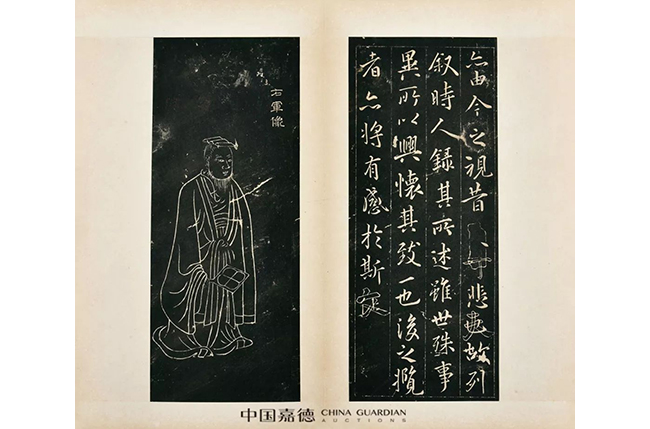 亦由今之視昔悲夫故列
叙時人録其所述雖世殊事
異所以興懷其致一也後之攬
者亦將有感於斯文
右軍像
中国嘉德 CHINA GUARDIAN
AUCTIONS